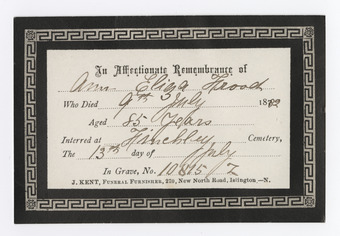 In Affectionate Remembrance of
Ann Eliza
Who Died 9th July 18
Aged 85 Years
Interred at Finchley Cemetery,
The 13th day of July
In Grave, No. 10815/Z
J. KENT, FUNERAL FURNISHER, 239, New North Road, Islington.—N.